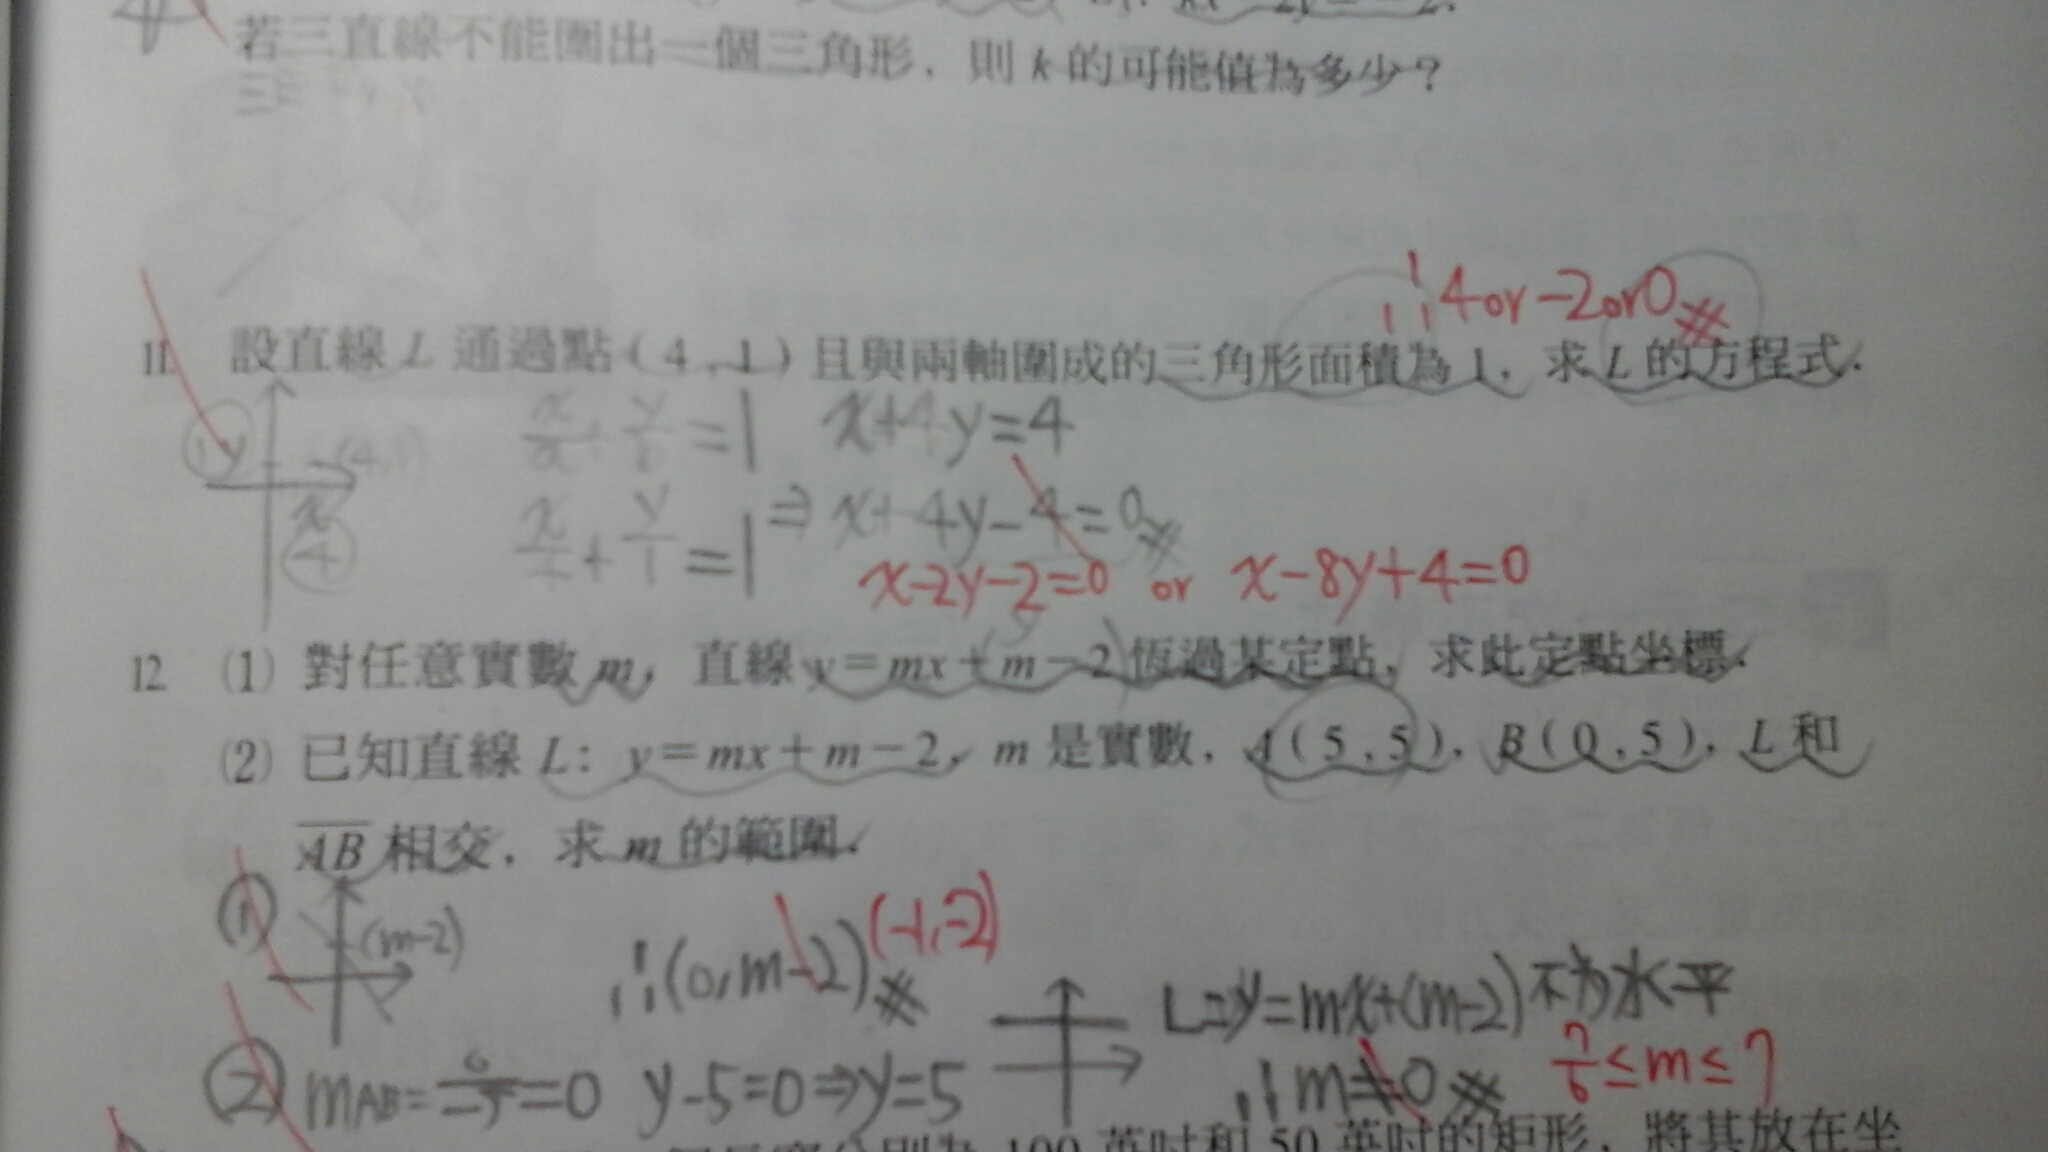 若三直線不能圍出一個三角形，則 k 的可能值為多少？
∴ 4 or -2 or 0 #
11 設直線 L 通過點（4 , 1）且與兩軸圍成的三角形面積為 1，求 L 的方程式.
y (4,1) x 4
x/a + y/b = 1 x+4y=4
x/4 + y/1 = 1 ⇒ x+4y-4=0 #
x-2y-2=0 or x-8y+4=0
12 (1) 對任意實數 m，直線 y=mx+m-2 恆過某定點，求此定點坐標.
(2) 已知直線 L：y=mx+m-2，m 是實數，A(5,5)，B(0,5)，L 和
AB 相交，求 m 的範圍.
① (m-2) ∴(0,m-2) # (-1,-2)
L=y=mx+(m-2) 不為水平
② mAB= =0 y-5=0⇒y=5 ∴m≠0 # 7/6≤m≤7
100 英吋和 50 英吋的矩形，將其放在坐